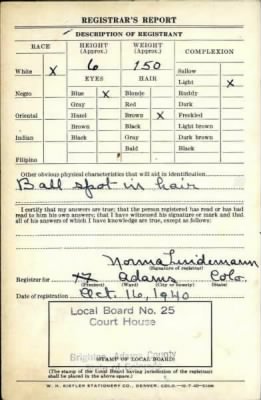 REGISTRAR'S REPORT
DESCRIPTION OF REGISTRANT
RACE HEIGHT (Approx.) WEIGHT (Approx.) COMPLEXION
White X 6 150 Sallow
EYES HAIR Light X
Negro Blue X Blonde Ruddy
Gray Red Dark
Oriental Hazel Brown X Freckled
Brown Black Light brown
Indian Black Gray Dark brown
Bald Black
Filipino
Other obvious physical characteristics that will aid in identification
Ball spot in hair
I certify that my answers are true; that the person registered has read or has had
read to him his own answers; that I have witnessed his signature or mark and that
all of his answers of which I have knowledge are true, except as follows:
Norma Lindemann
(Signature of registrar)
Registrar for Adams Colo.
(Precinct) (Ward) (City or county) (State)
Date of registration Oct. 16, 1940
Local Board No. 25
Court House
Brighton, Adams County
STAMP OF LOCAL BOARD
(The stamp of the Local Board having jurisdiction of the registrant
shall be placed in the above space.)
W. H. KISTLER STATIONERY CO., DENVER, COLO.